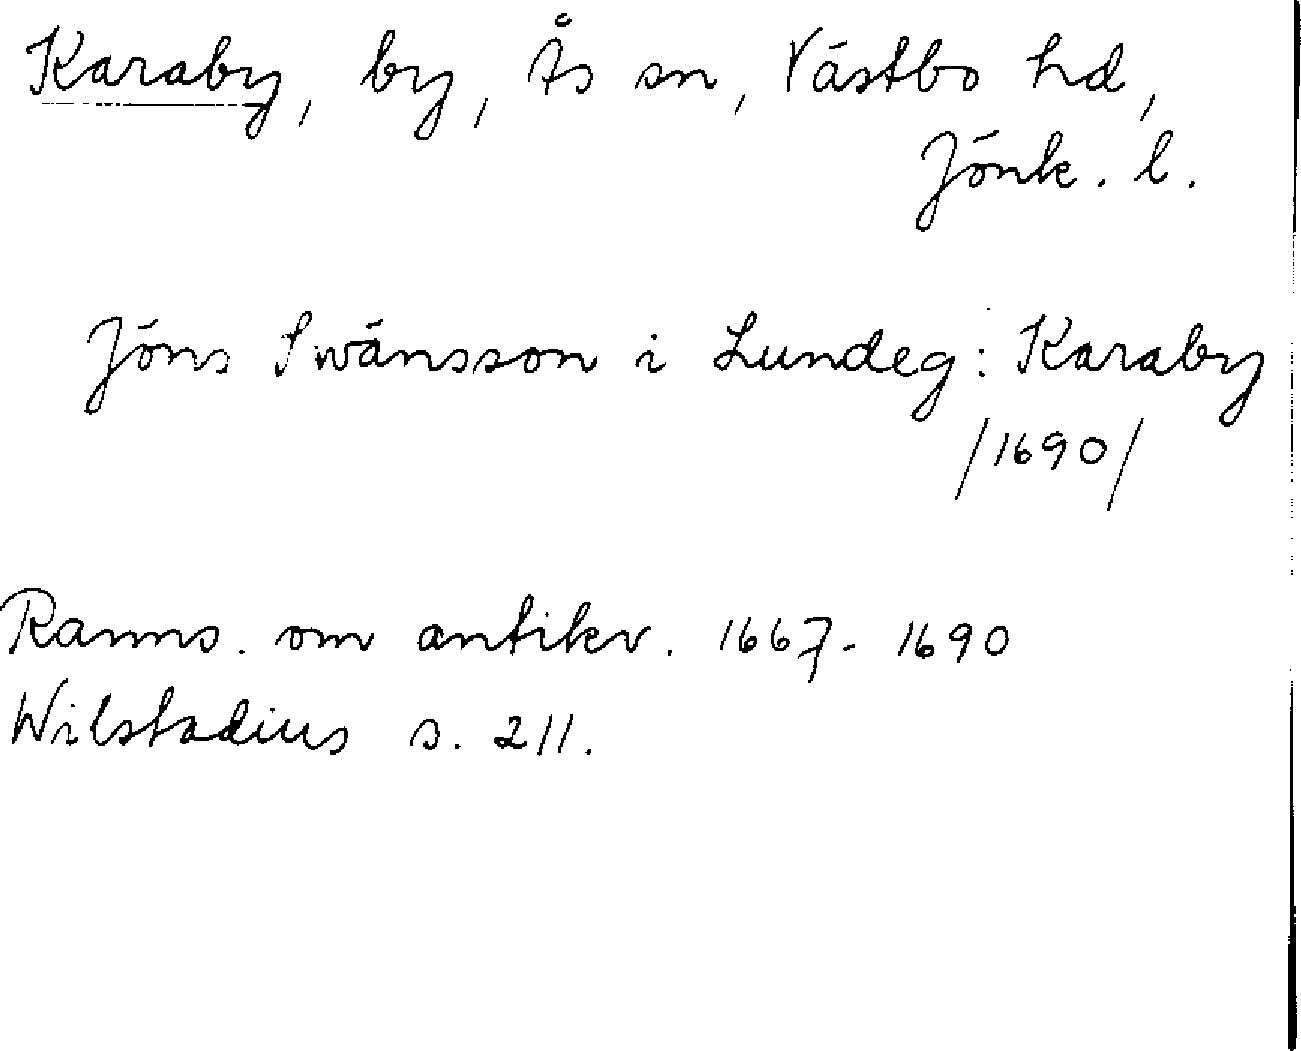 Karaby, by, Ås sn, Västbo hd,
Jönk. l.
Jöns Swänsson i Lundeg: Karaby
/1690/
Ranns. om antikv. 1667-1690
Wilstadius s. 211.